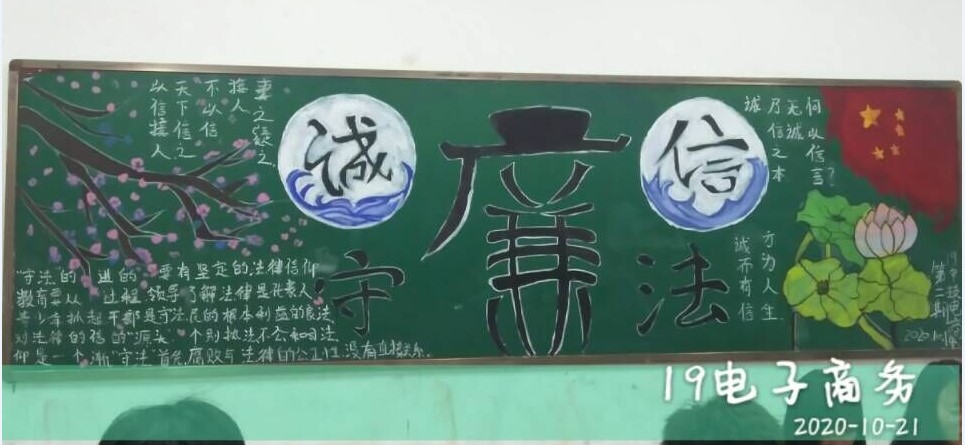 以信接人
天下信之
不以信
接人
妻之疑之
诚
廉
信
守
法
诚
乃信之本
无诚
何以信言?
诚而有信
方为人生
"守法的 进的 要有坚定的法律信仰
教育要从 过程 领导了解法律是代表人
青少年 都是守法 民的根本利益的良法
对法律的信的源头 个别执法不公 法
仰是一个渐 守法 首色 腐败与法律的公正性 没有直接联系.
第二期
19电子商务
2020-10-21